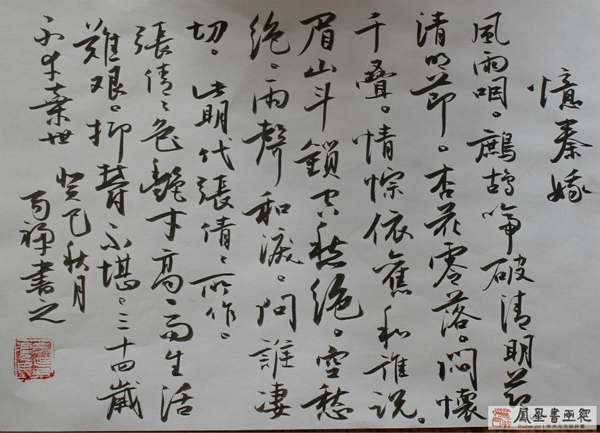 憶秦娥
風雨咽。鷓鴣啼破清明節。
清明節。杏花零落。悶懷
千疊。情悰依舊和誰說。
眉山斗鎖空愁絕。空愁
絕。雨聲和淚。問誰淒
切。此明代張倩〻所作。
張倩〻色艷才高。而生活
難艱。抑鬱不堪。三十四歲
不幸棄世 癸巳秋月
禪書之